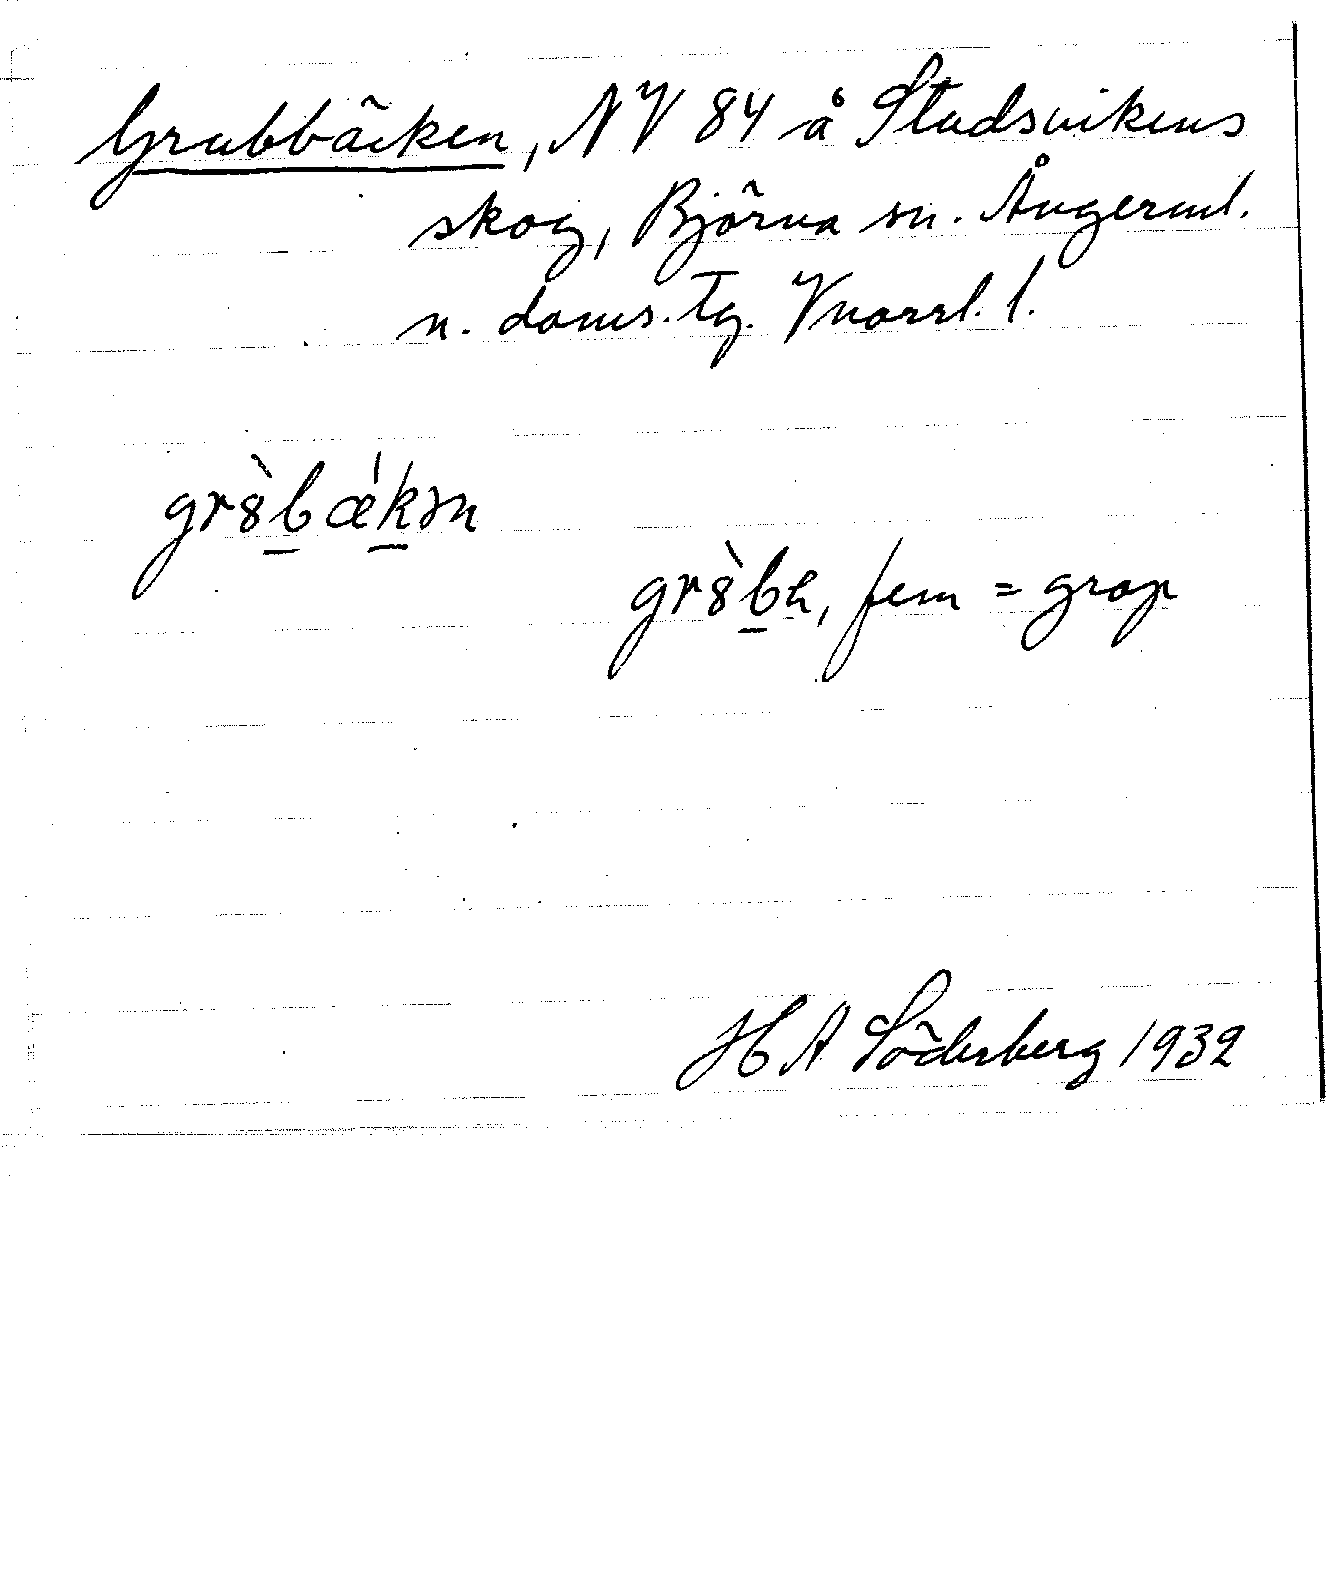 Grubbäcken, NV 84 å Studsvikens
skog, Björna sn. Ångerml.
n. doms. tg. Vnorrl. l.
gr8̀b̲ǽk̲ən
gr8̀b̲e, fem = grop
H A Söderberg 1932